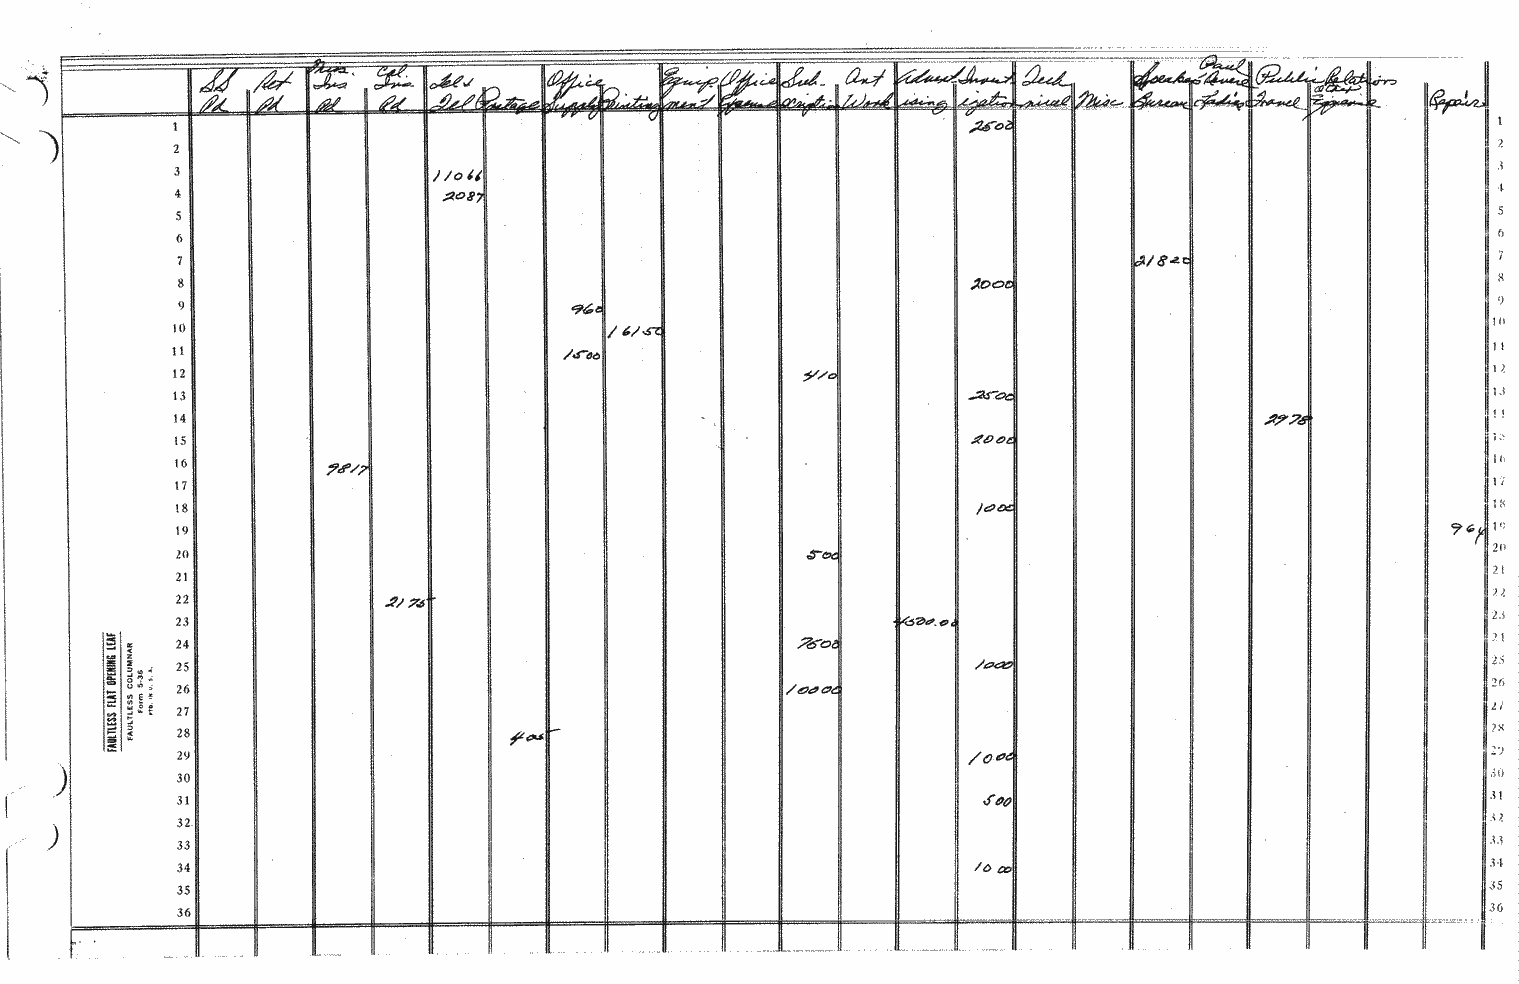 SS Pd
Ret Pd
Ins Pd
Cal. Ins. Pd
Tel & Tel
Postage
Office Supply
Printing
Equip- ment
Office Expense
Sub- scription
Art Work
Advert- ising
Invest- igation
Tech nical
Misc
Speakers Bureau
Paul Revere Ladies
Public Relations
Travel
Other Expense
Repairs
1 2500 1
2 2
3 11066 3
4 2087 4
5 5
6 6
7 21820 7
8 2000 8
9 960 9
10 16150 10
11 1500 11
12 410 12
13 2500 13
14 2978 14
15 2000 15
16 9817 16
17 17
18 1000 18
19 964 19
20 500 20
21 21
22 2175 22
23 4500.00 23
24 7500 24
25 1000 25
26 10000 26
27 27
28 405 28
29 1000 29
30 30
31 500 31
32 32
33 33
34 1000 34
35 35
36 36
FAULTLESS FLAT OPENING LEAF
FAULTLESS COLUMNAR
Form S-36
PTD. IN U. S. A.